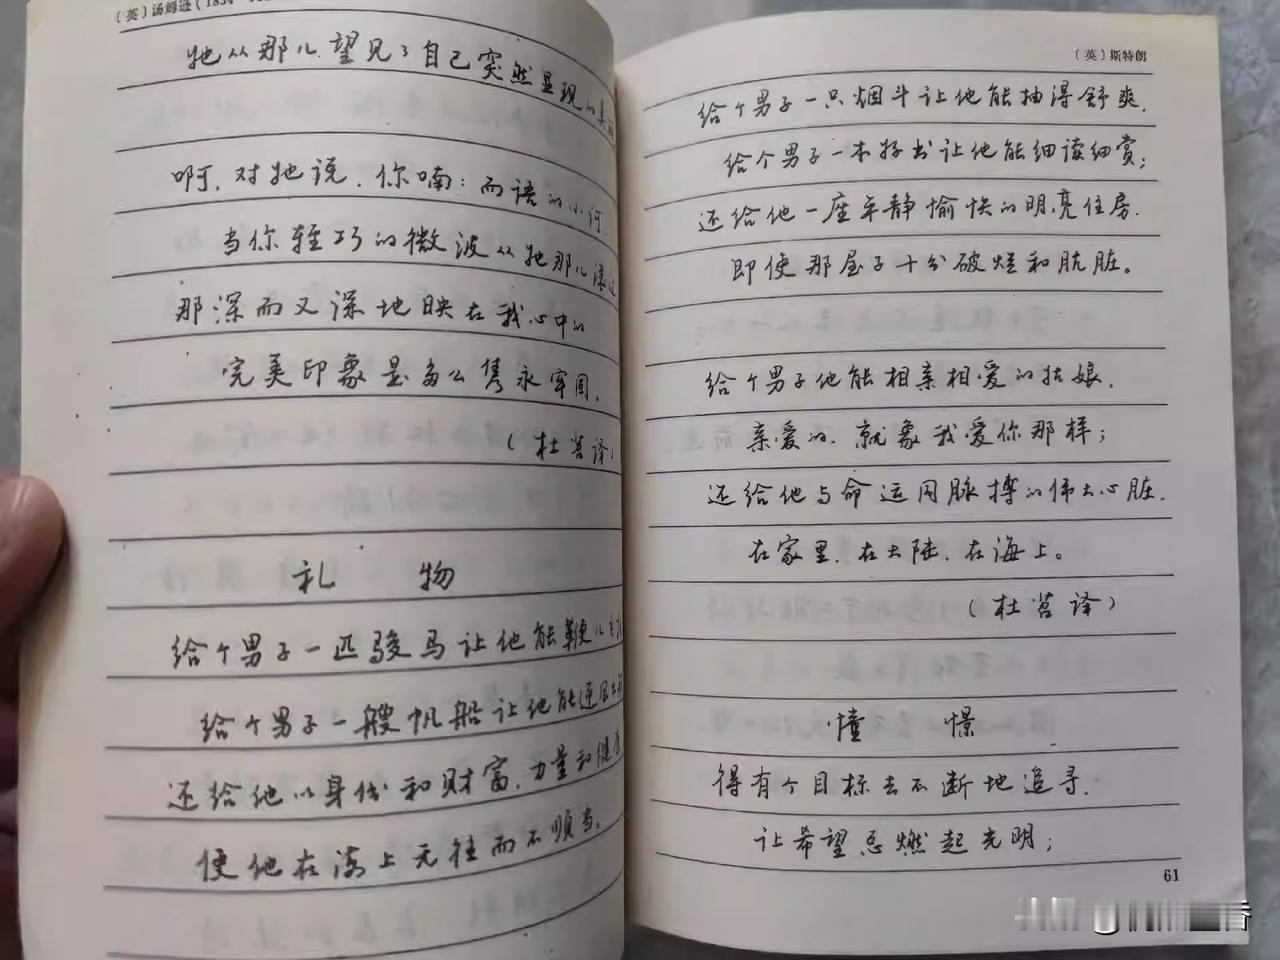 〔英〕汤姆逊(1834
她从那儿望见了自己突然显现的美
啊，对她说，你喃：而语的小河，
当你轻巧的微波从她那儿漾过
那深而又深地映在我心中的
完美印象是多么隽永牢固。
（杜若译）
礼 物
给个男子一匹骏马让他能鞭
给个男子一艘帆船让他能逆风
还给他以身份和财富，力量和健康
使他在海上无往而不顺当。
〔英〕斯特朗
给个男子一只烟斗让他能抽得舒爽，
给个男子一本好书让他能细读细赏；
还给他一座平静愉快的明亮住房，
即使那屋子十分破烂和肮脏。
给个男子他能相亲相爱的姑娘，
亲爱的，就象我爱你那样；
还给他与命运同脉搏的伟大心脏，
在家里，在大陆，在海上。
（杜若译）
憧 憬
得有个目标去不断地追寻，
让希望总燃起光明；
61